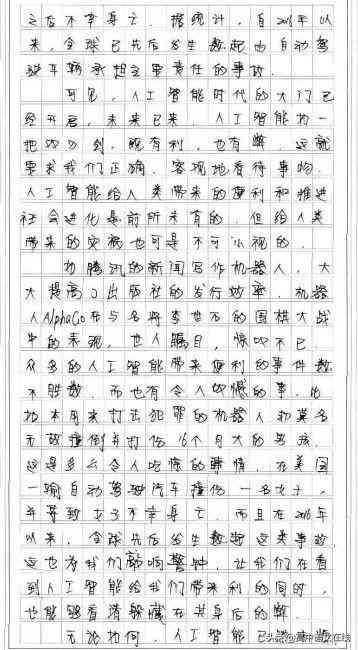 之后不幸身亡。据统计，自2016年以
来，全球已先后发生数起由自动驾
驶车辆承担主要责任的事故。
可见，人工智能时代的大门已
经开启，未来已来，人工智能如一
把双刃剑，既有利，也有弊，这就
要求我们正确、客观地看待事物。
人工智能给人类带来的便利和推进
社会进化是前所未有的，但给人类
带来的灾祸也可是不可小视的。
如腾讯的新闻写作机器人，大
大提高了出版社的发行效率，机器
人AlphaGo在与名将李世石的围棋大战
中的表现，世人瞩目，惊叹不已
众多的人工智能带来便利的事件数
不胜数。而也有令人的事，比
如本用来打击犯罪的机器人却莫名
无故撞倒并打伤16个月大的男孩，
这是多么令人吃惊的事情，在美国
一辆自动驾驶汽车撞伤一名女子，
并导致女子不幸身亡，而且在2016年
以来，全球先后发生数起这类事故，
这也为我们敲响警钟，让我们在看
到人工智能给我们带来利的同时，
也能够看清躲藏在其身后的弊。
无论如何，人工智能已